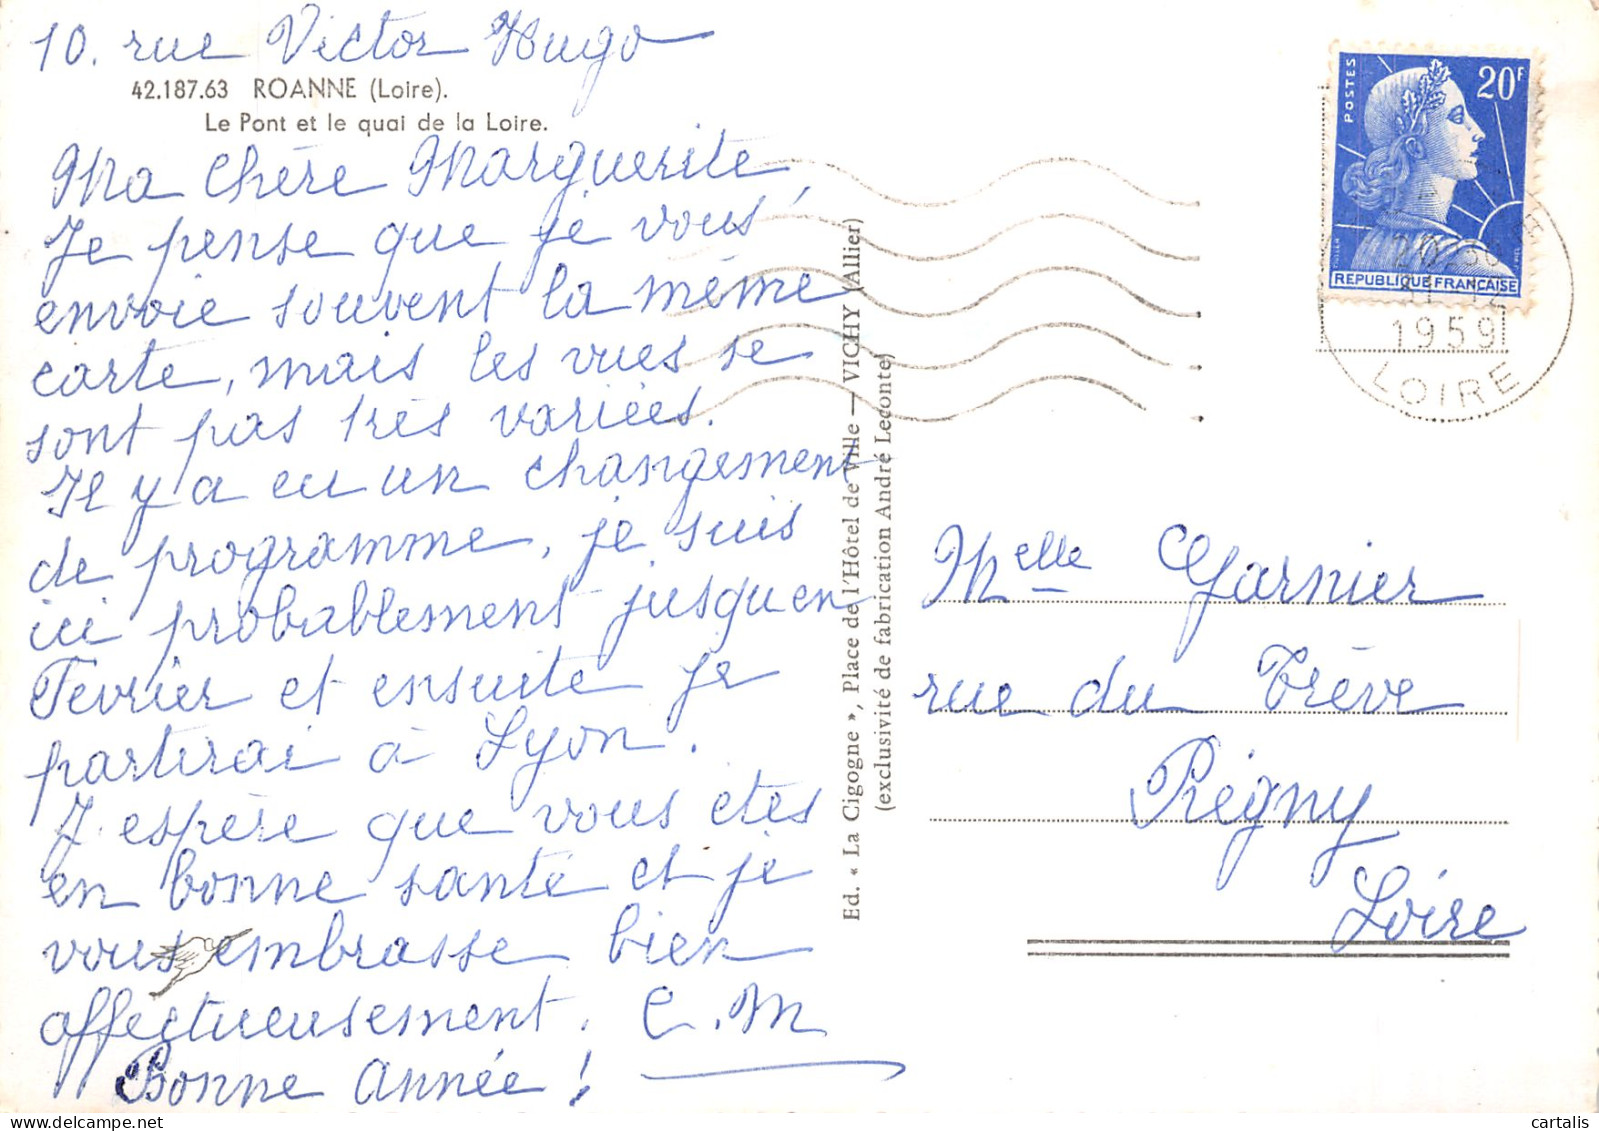 10. rue Victor Hugo
42.187.63 ROANNE (Loire).
Le Pont et le quai de la Loire.
Ma Chère Marguerite,
Je pense que je vous
envoie souvent la même
carte, mais les vues se
sont pas très variées.
Il y a eu un changement
de programme, je suis
ici probablement jusqu'en
Février et ensuite je
partirai à Lyon.
J espère que vous etes
en bonne santé et je
vous embrasse bien
affectueusement. C. M
Bonne année !
Ed. « La Cigogne », Place de l'Hôtel de Ville — VICHY (Allier)
(exclusivité de fabrication André Leconte)
POSTES
20F
REPUBLIQUE FRANÇAISE
1959
LOIRE
Melle Garnier
rue du Trève
Régny
Loire
cartalis